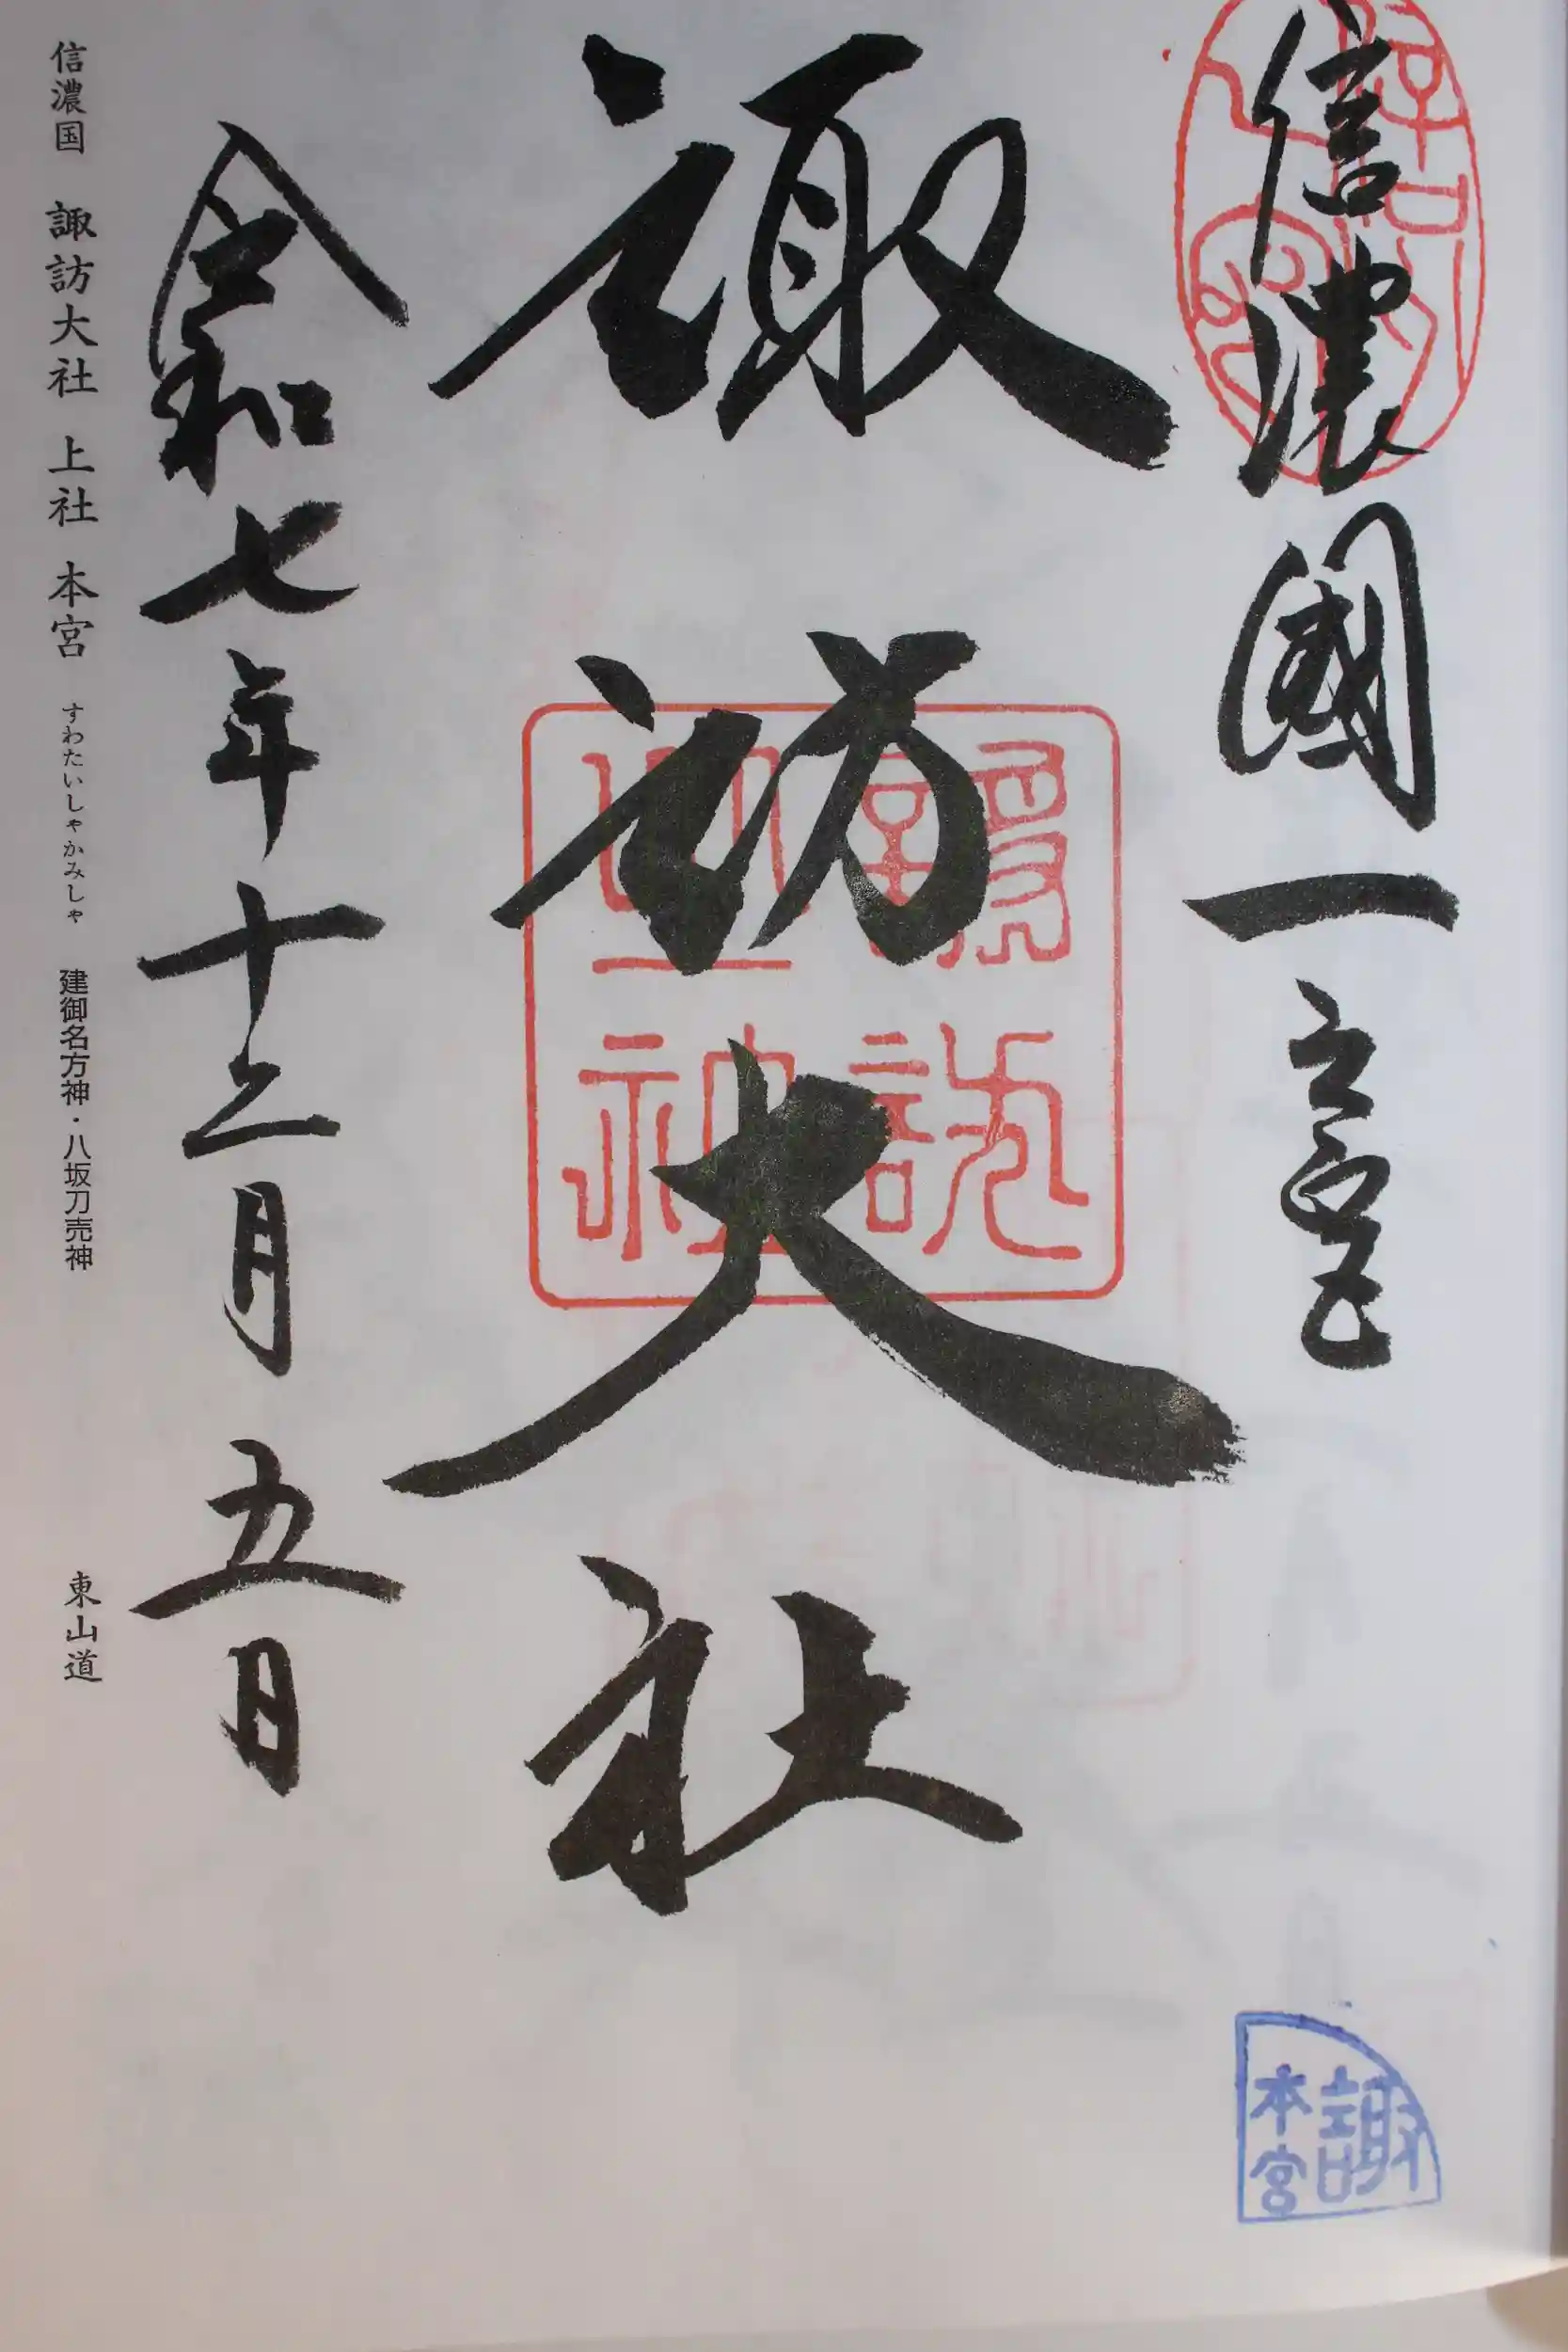 信濃國一之宮
諏訪大社
令和七年十二月五日
信濃国 諏訪大社 上社 本宮 すわたいしゃかみしゃ 建御名方神・八坂刀売神 東山道
諏
本宮